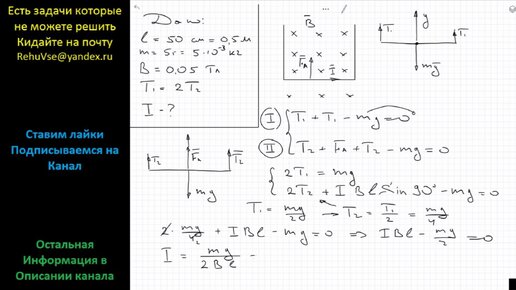 Есть задачи которые
не можете решить
Кидайте на почту
RehuVse@yandex.ru
Ставим лайки
Подписываемся на
Канал
Остальная
Информация в
Описании канала
Дано:
l = 50 см = 0,5 м
m = 5 г = 5·10⁻³ кг
B = 0,05 Тл
T₁ = 2T₂
I - ?
B
Fₐ
I
T₁
y
T₁
mg
T₂
Fₐ
T₂
mg
I T₁ + T₁ - mg = 0
II T₂ + Fₐ + T₂ - mg = 0
2T₁ = mg
2T₂ + I B l Sin 90° - mg = 0
T₁ = mg/2 → T₂ = T₁/2 = mg/4
2 · mg/4₂ + I B l - mg = 0 ⇒ I B l - mg/2 = 0
I = mg/2 B l =